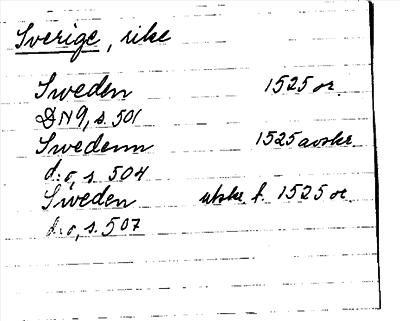 Sverige, rike
Sweden 1525 or.
DN 9, s. 501
Swedenn 1525 avskr.
d:o, s. 504
Sweden utskr. f. 1525 or.
d:o, s. 507